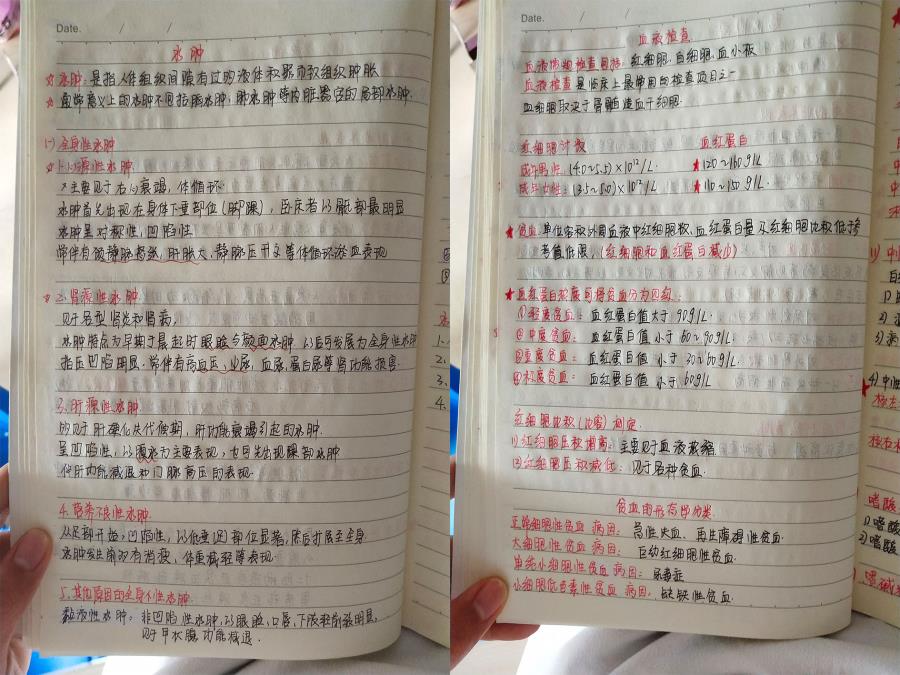 Date.
水肿
☆水肿：是指人体组织间隙有过的液体积聚而致组织肿胀
☆通常意义上的水肿不同指脑水肿，肺水肿等内脏器官的局部水肿.
(一)全身性水肿
☆1.心源性水肿
*主要见于右心衰竭，体循环
水肿首先出现在身体下垂部位(脚踝)，卧床者以骶部最明显
水肿呈对称性，凹陷性
常伴有颈静脉怒张，肝肿大，静脉压升高等体循环淤血表现
☆2.肾源性水肿
见于各型肾炎和肾病，
水肿特点为早期于晨起时眼睑与颜面水肿，以后可发展为全身性水肿
指压凹陷明显，常伴有高血压，少尿，血尿，蛋白尿等肾功能损害.
3.肝源性水肿
多见于肝硬化失代偿期，肝功能衰竭引起的水肿.
呈凹陷性，以腹水为主要表现，也可先出现踝部水肿
伴肝功能减退和门脉高压的表现.
4.营养不良性水肿
从足部开始，凹陷性，以低垂凹部位显著，随后扩展至全身.
水肿发生前现有消瘦，体重减轻等表现.
5.其他原因的全身性水肿
黏液性水肿：非凹陷性水肿，以眼睑，口唇，下肢胫前较明显，
见于甲状腺功能减退.
Date. / /
血液检查
血液的细胞检查包括：红细胞，白细胞，血小板
血液检查是临床上最常用的检查项目之一
血细胞取决于骨髓造血干细胞.
红细胞计数 血红蛋白
成年男性 (4.0~5.5)×10¹²/L. ★120~160g/L
成年女性：(3.5~5.0)×10¹²/L. ★110~150g/L
★贫血 单位容积外周血液中红细胞数，血红蛋白量及红细胞比积低于参
考值低限，(红细胞和血红蛋白减少)
★血红蛋白浓度可将贫血分为四级：
①轻度贫血：血红蛋白值大于 90g/L.
②中度贫血： 血红蛋白值 小于 60~90g/L.
③重度贫血： 血红蛋白值 小于 30~60g/L
④极度贫血： 血红蛋白值 小于
红细胞比积(比容)测定.
(1)红细胞压积增高：主要见于血液浓缩
(2)红细胞压积减低：见于各种贫血.
贫血的形态学分类
正常细胞性贫血 病因：急性失血，再生障碍性贫血.
大细胞性贫血 病因：巨幼红细胞性贫血
单纯小细胞性贫血 病因：尿毒症
小细胞低色素性贫血 病因：缺铁性贫血.